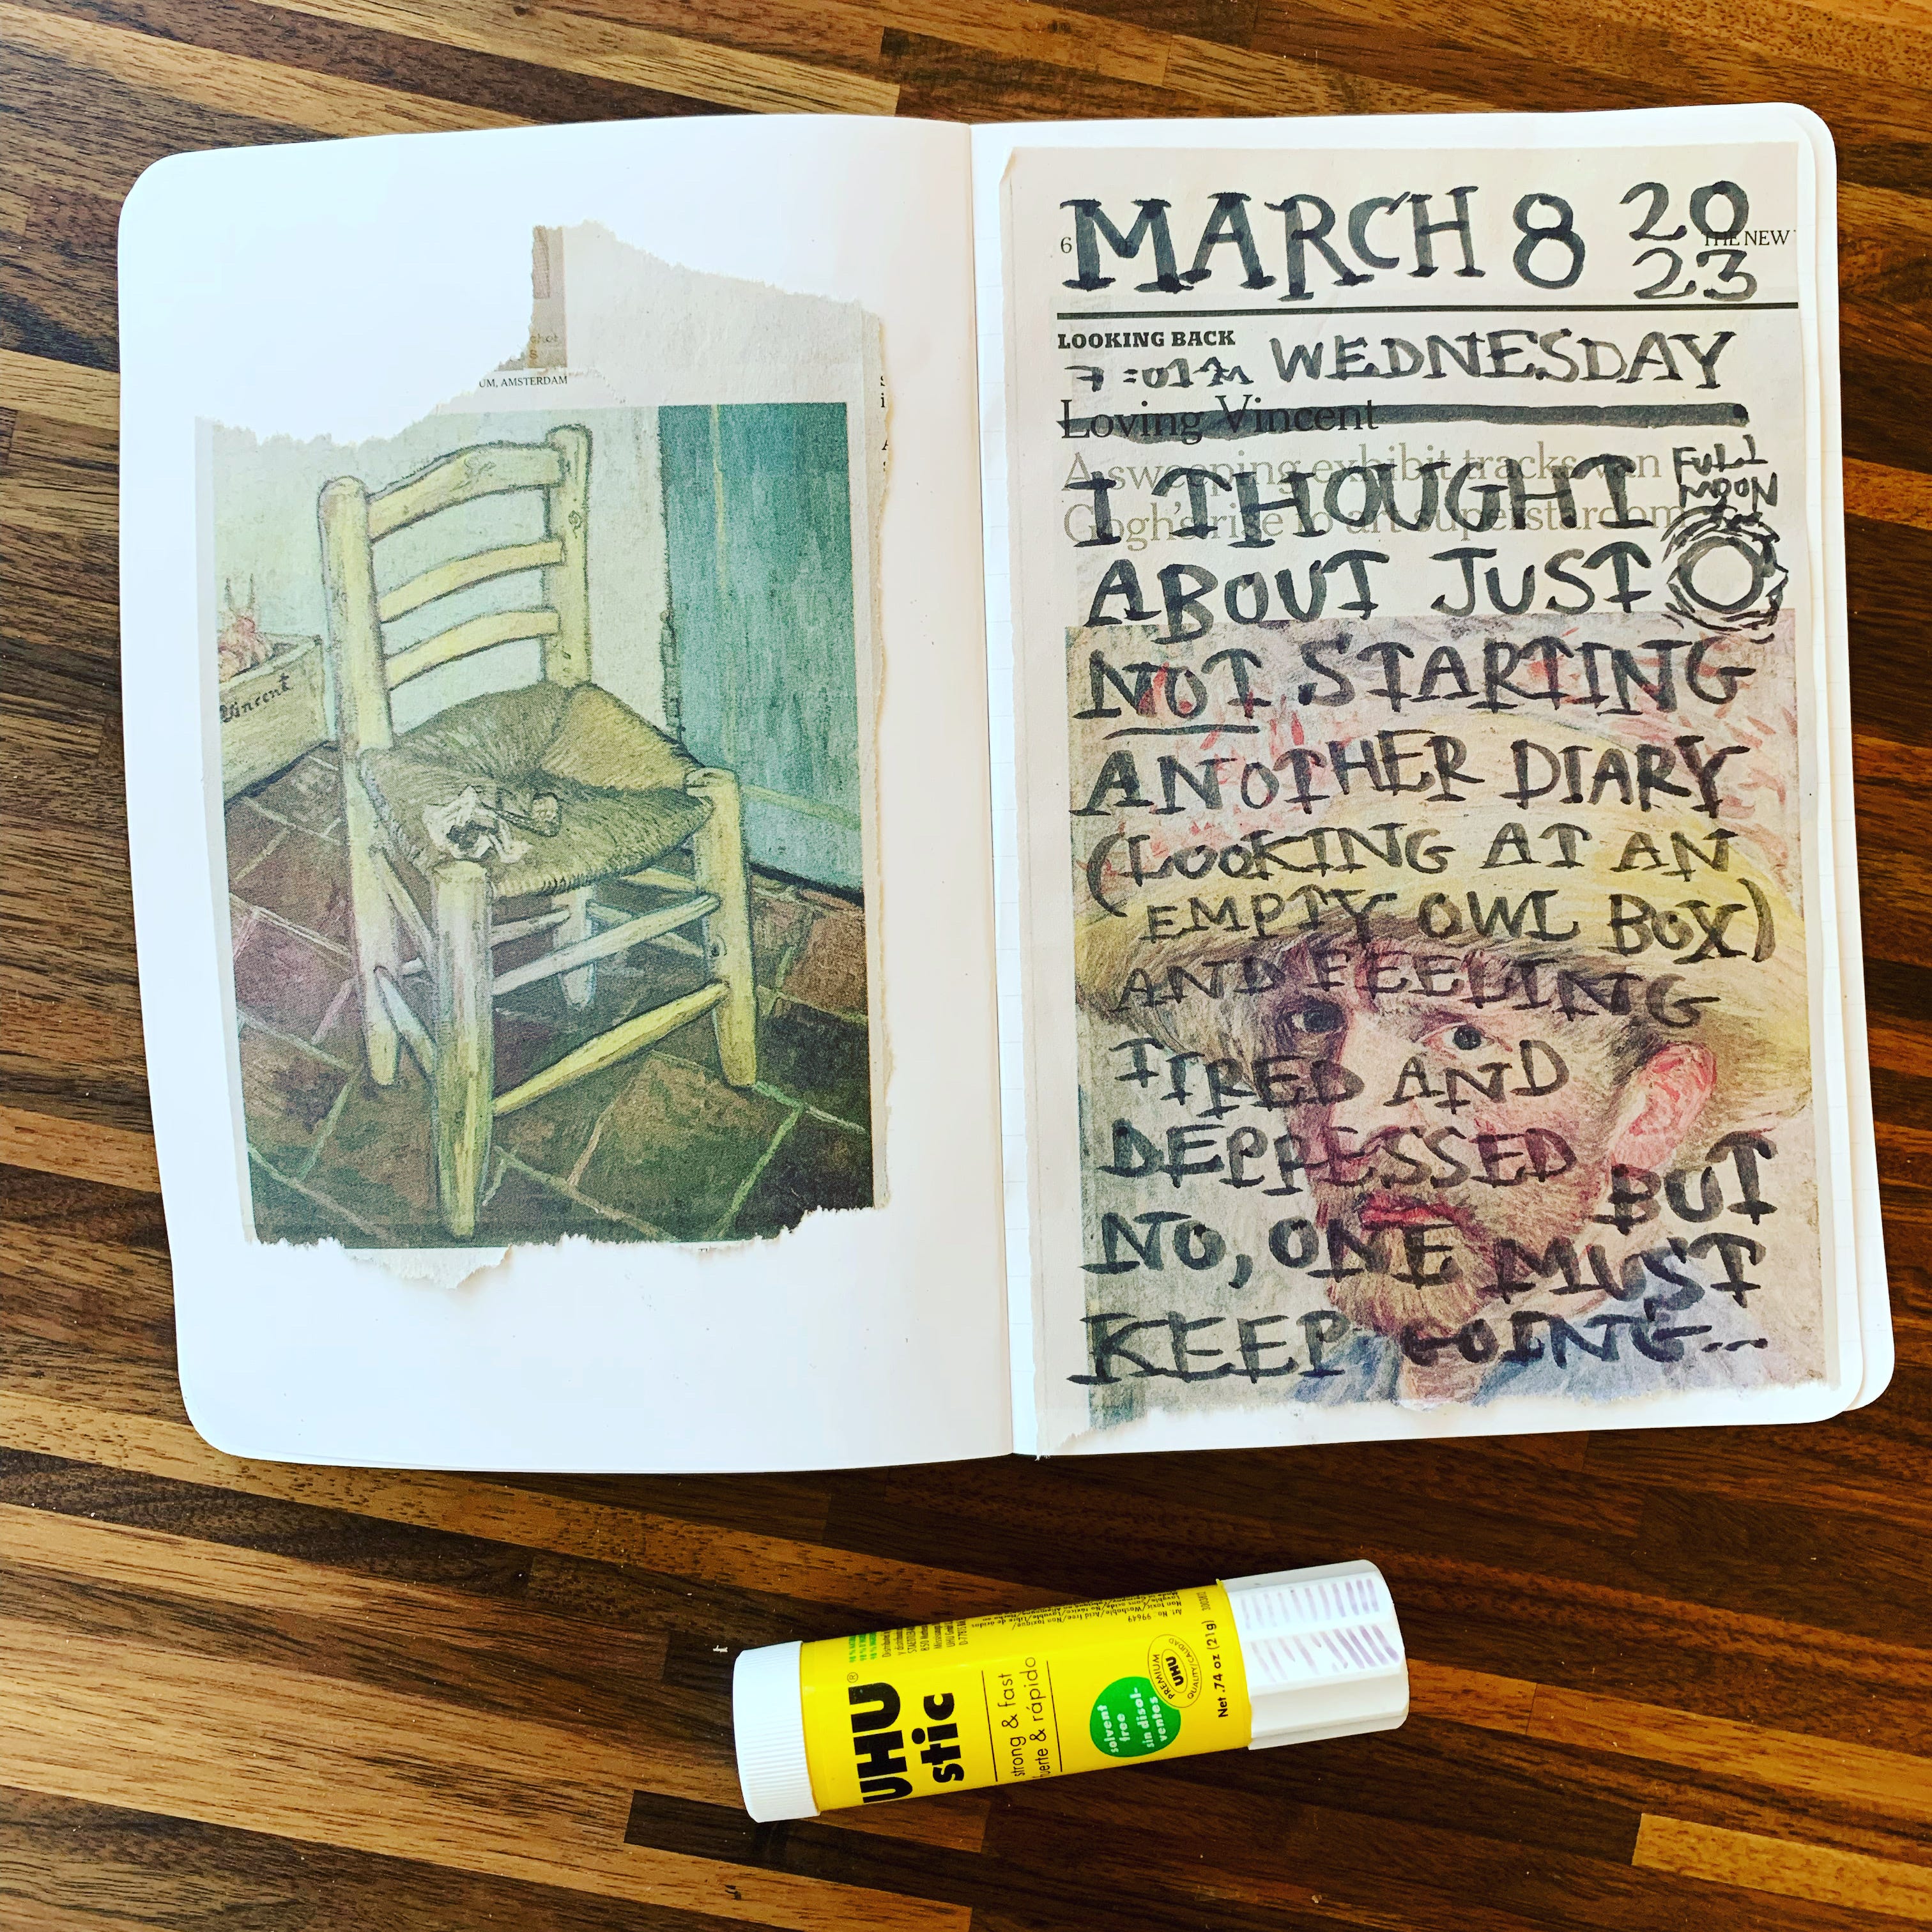 UM, AMSTERDAM
Vincent
6
MARCH 8 20
23
THE NEW
LOOKING BACK
WEDNESDAY
Loving Vincent
A sweeping exhibit tracks van
Gogh's rise to art superstardom
FULL
MOON
I THOUGHT
ABOUT JUST
NOT STARTING
ANOTHER DIARY
(LOOKING AT AN
EMPTY OWL BOX)
AND FEELING
TIRED AND
DEPRESSED BUT
NO, ONE MUST
KEEP GOING...
UHU®
stic
strong & fast
fuerte & rápido
solvent
free
sin disol-
ventes
PREMIUM
UHU
QUALITY/CALIDAD
Net .74 oz (21g)
Art. No. 99649